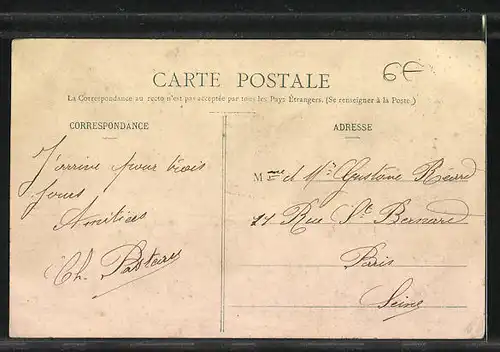 6€
CARTE POSTALE
La Correspondance au recto n'est pas acceptée par tous les Pays Étrangers. (Se renseigner à la Poste.)
CORRESPONDANCE
ADRESSE
J'arrive pour trois
jours
Amitiés
Ch.
Mme et Mr Gustave
Rue St Bernard
Paris
Seine